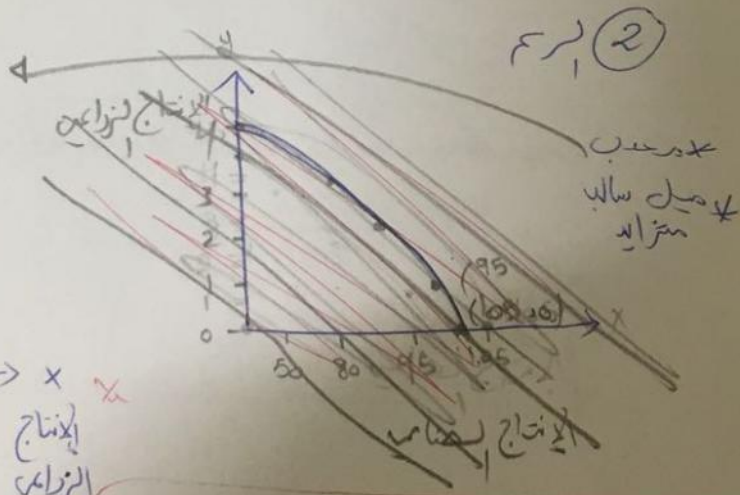 ② الرسم
y
الإنتاج الزراعي
* محدب
* ميل سالب
متزايد
4
3
2
1
0
50 80 95 105
x
(95
(105,0)
الإنتاج الصناعي
→ x
الإنتاج
الزراعي